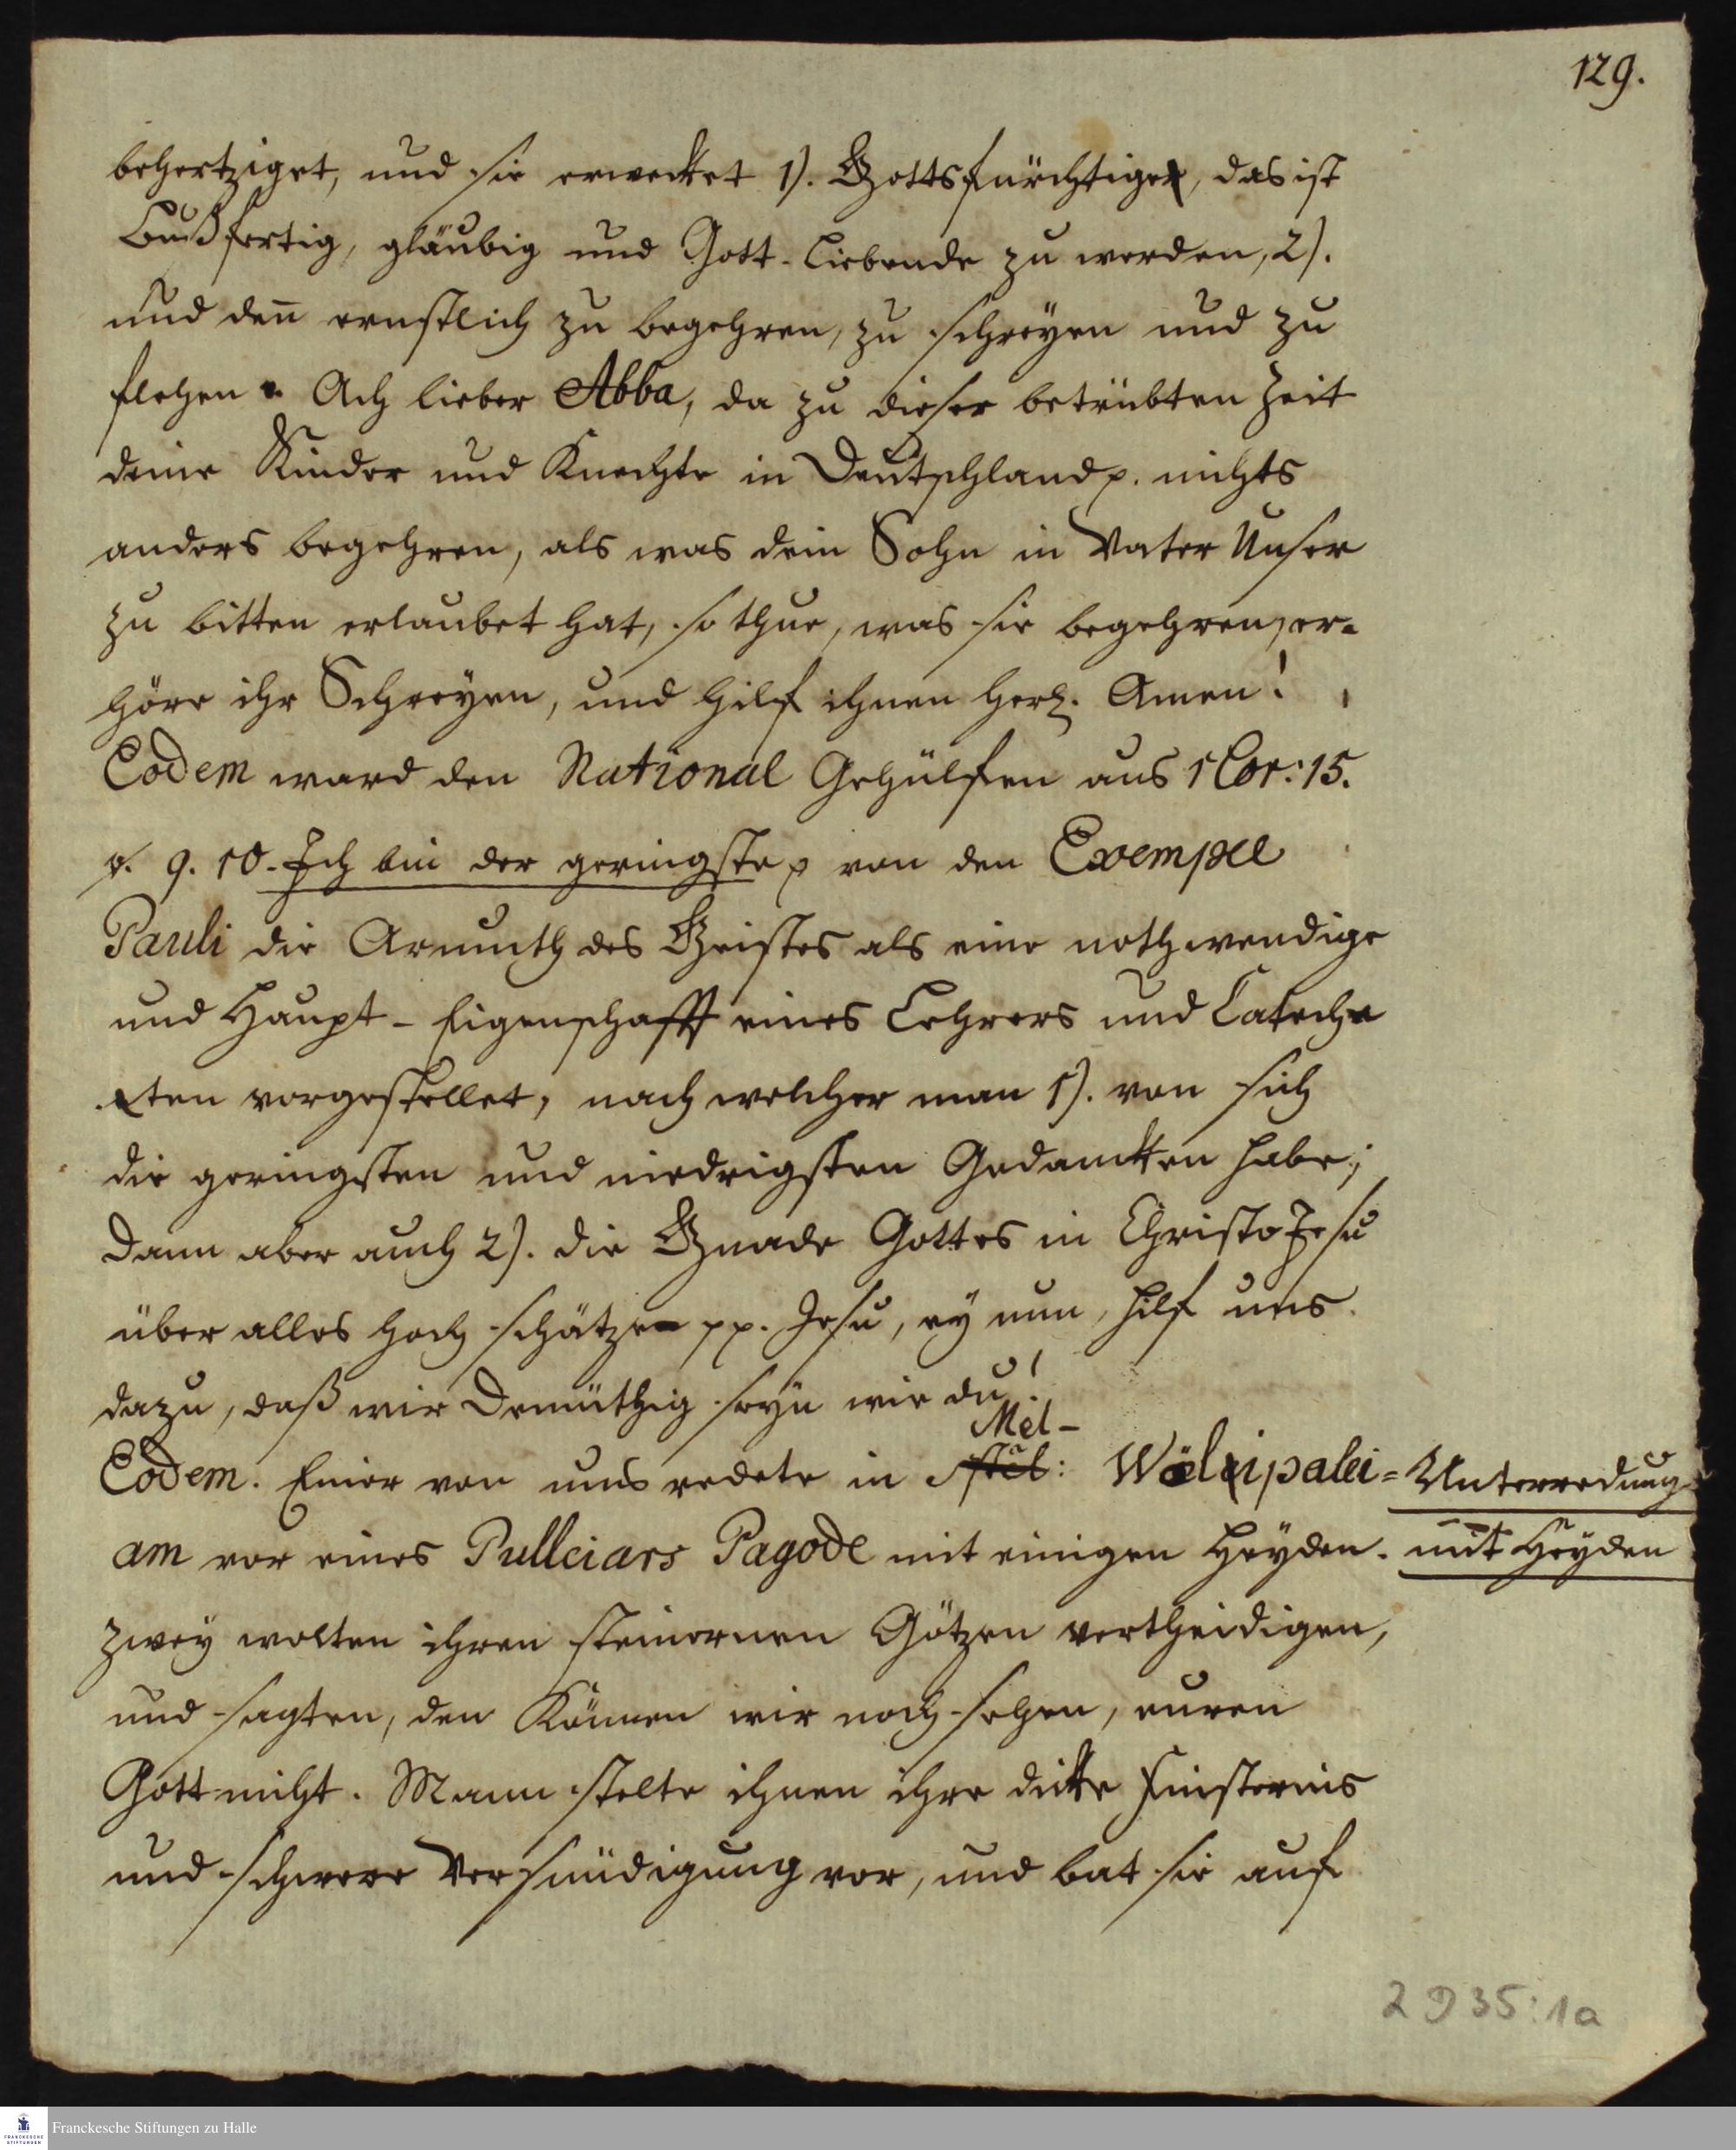 129.
behertziget, und sie erwecket 1). Gottsfürchtige, das ist
Bußfertig, gläubig und Gott-Liebende zu werden, 2).
und den̄ ernstlich zu begehren, zu schreyen und zu
flehen. Ach lieber Abba, da zu dieser betrübten Zeit
deine Kinder und Knechte in Deutschland p. nichts
anders begehren, als was dein Sohn in Vater Unser
zu bitten erlaubet hat, so thue, was sie begehren, er-
höre ihr Schreyen, und hilf ihnen herl. Amen!
Eodem ward den National Gehülfen aus 1 Cor: 15.
v. 9. 10. Ich bin der geringste p von den Exempel
Pauli die Armuth des Geistes als eine nothwendige
und Haupt-Eigenschafft eines Lehrers und Cateche
ten vorgestellet, nach welcher man 1). von sich
die geringsten und niedrigsten Gedancken habe;
Dann aber auch 2). die Gnade Gottes in Christo Jesu
über alles hoch schätze pp. Jesu, ey nun, hilf uns
dazu, daß wir Demüthig seyn wie du!
Mel-
Eodem. Einer von uns redete in : Wölipalei-
Unterredung
am vor eines Pulleiars Pagode mit einigen Heyden.
mit Heyden
Zwey wolten ihren steinernen Götzen vertheidigen,
und sagten, den Können wir noch sehen, euren
Gott nicht. Mann stelte ihnen ihre dicke Finsternis
und schwere Versündigung vor, und bat sie auf
2 D 35:1a
Franckesche Stiftungen zu Halle
FRANCKESCHE
STIFTUNGEN